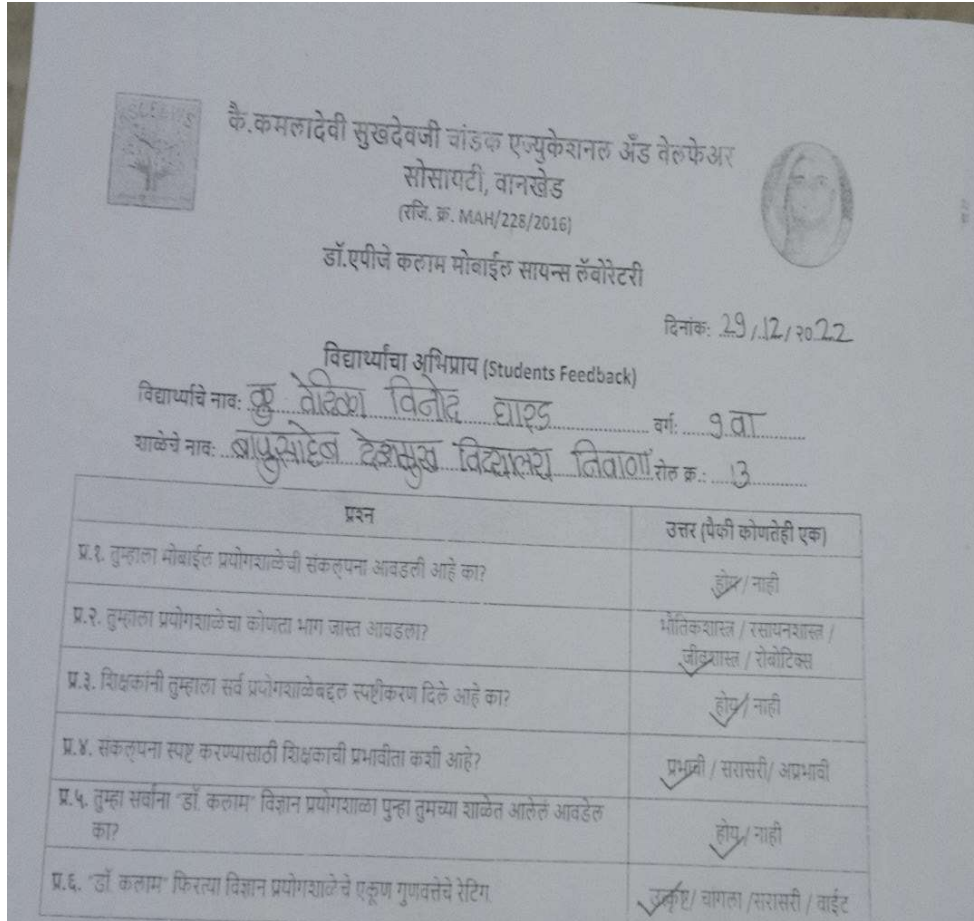 कै.कमलादेवी सुखदेवजी चांडक एज्युकेशनल अँड वेलफेअर
सोसायटी, वानखेड
(रजि. क्र. MAH/228/2016)
डॉ.एपीजे कलाम मोबाईल सायन्स लॅबोरेटरी
दिनांक: 29/12/२०22
विद्यार्थ्यांचा अभिप्राय (Students Feedback)
विद्यार्थ्याचे नाव: कु विनोद घारड वर्ग: 9 वा
शाळेचे नाव: बापुसाहेब देशमुख विद्यालय निवाणा रोल क्र.: 13
प्रश्न उत्तर (पैकी कोणतेही एक)
प्र.१. तुम्हाला मोबाईल प्रयोगशाळेची संकल्पना आवडली आहे का? होय / नाही
प्र.२. तुम्हाला प्रयोगशाळेचा कोणता भाग जास्त आवडला? भौतिकशास्त्र / रसायनशास्त्र /
जीवशास्त्र / रोबोटिक्स
प्र.३. शिक्षकांनी तुम्हाला सर्व प्रयोगशाळेबद्दल स्पष्टीकरण दिले आहे का? होय / नाही
प्र.४. संकल्पना स्पष्ट करण्यासाठी शिक्षकाची प्रभावीता कशी आहे? प्रभावी / सरासरी/ अप्रभावी
प्र.५. तुम्हा सर्वांना "डॉ. कलाम" विज्ञान प्रयोगशाळा पुन्हा तुमच्या शाळेत आलेलं आवडेल
का? होय / नाही
प्र.६. "डॉ. कलाम" फिरत्या विज्ञान प्रयोगशाळेचे एकूण गुणवत्तेचे रेटिंग उत्कृष्ट/ चांगला /सरासरी / वाईट